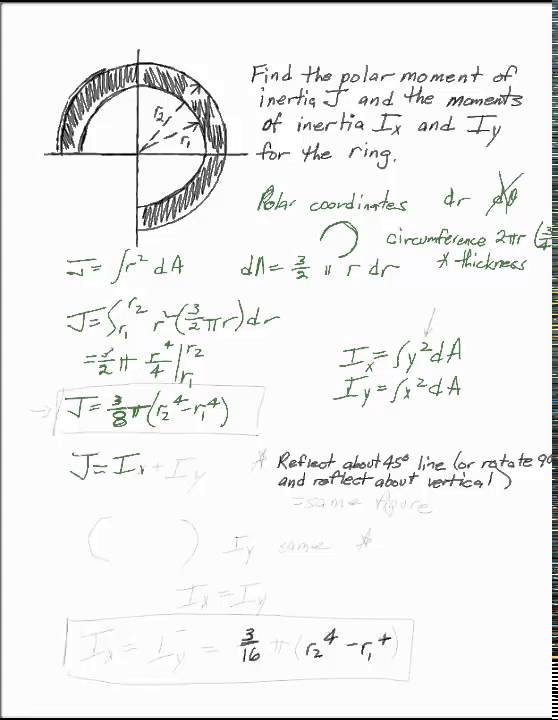 Find the polar moment of
inertia J and the moments
of inertia Ix and Iy
for the ring.
r2
r1
Polar coordinates dr dθ
circumference 2πr (3/4
* thickness
J = ∫r² dA dA = 3/2 π r dr
J = ∫r1^r2 r²(3/2 πr) dr
= 3/2 π r⁴/4 |r1^r2
J = 3/8 π (r2⁴ - r1⁴)
Ix = ∫y² dA
Iy = ∫x² dA
J = Ix + Iy
* Reflect about 45° line (or rotate 90
and reflect about vertical)
= same figure
( ) Iy same *
Ix = Iy
Ix = Iy = 3/16 π (r2⁴ - r1⁴)